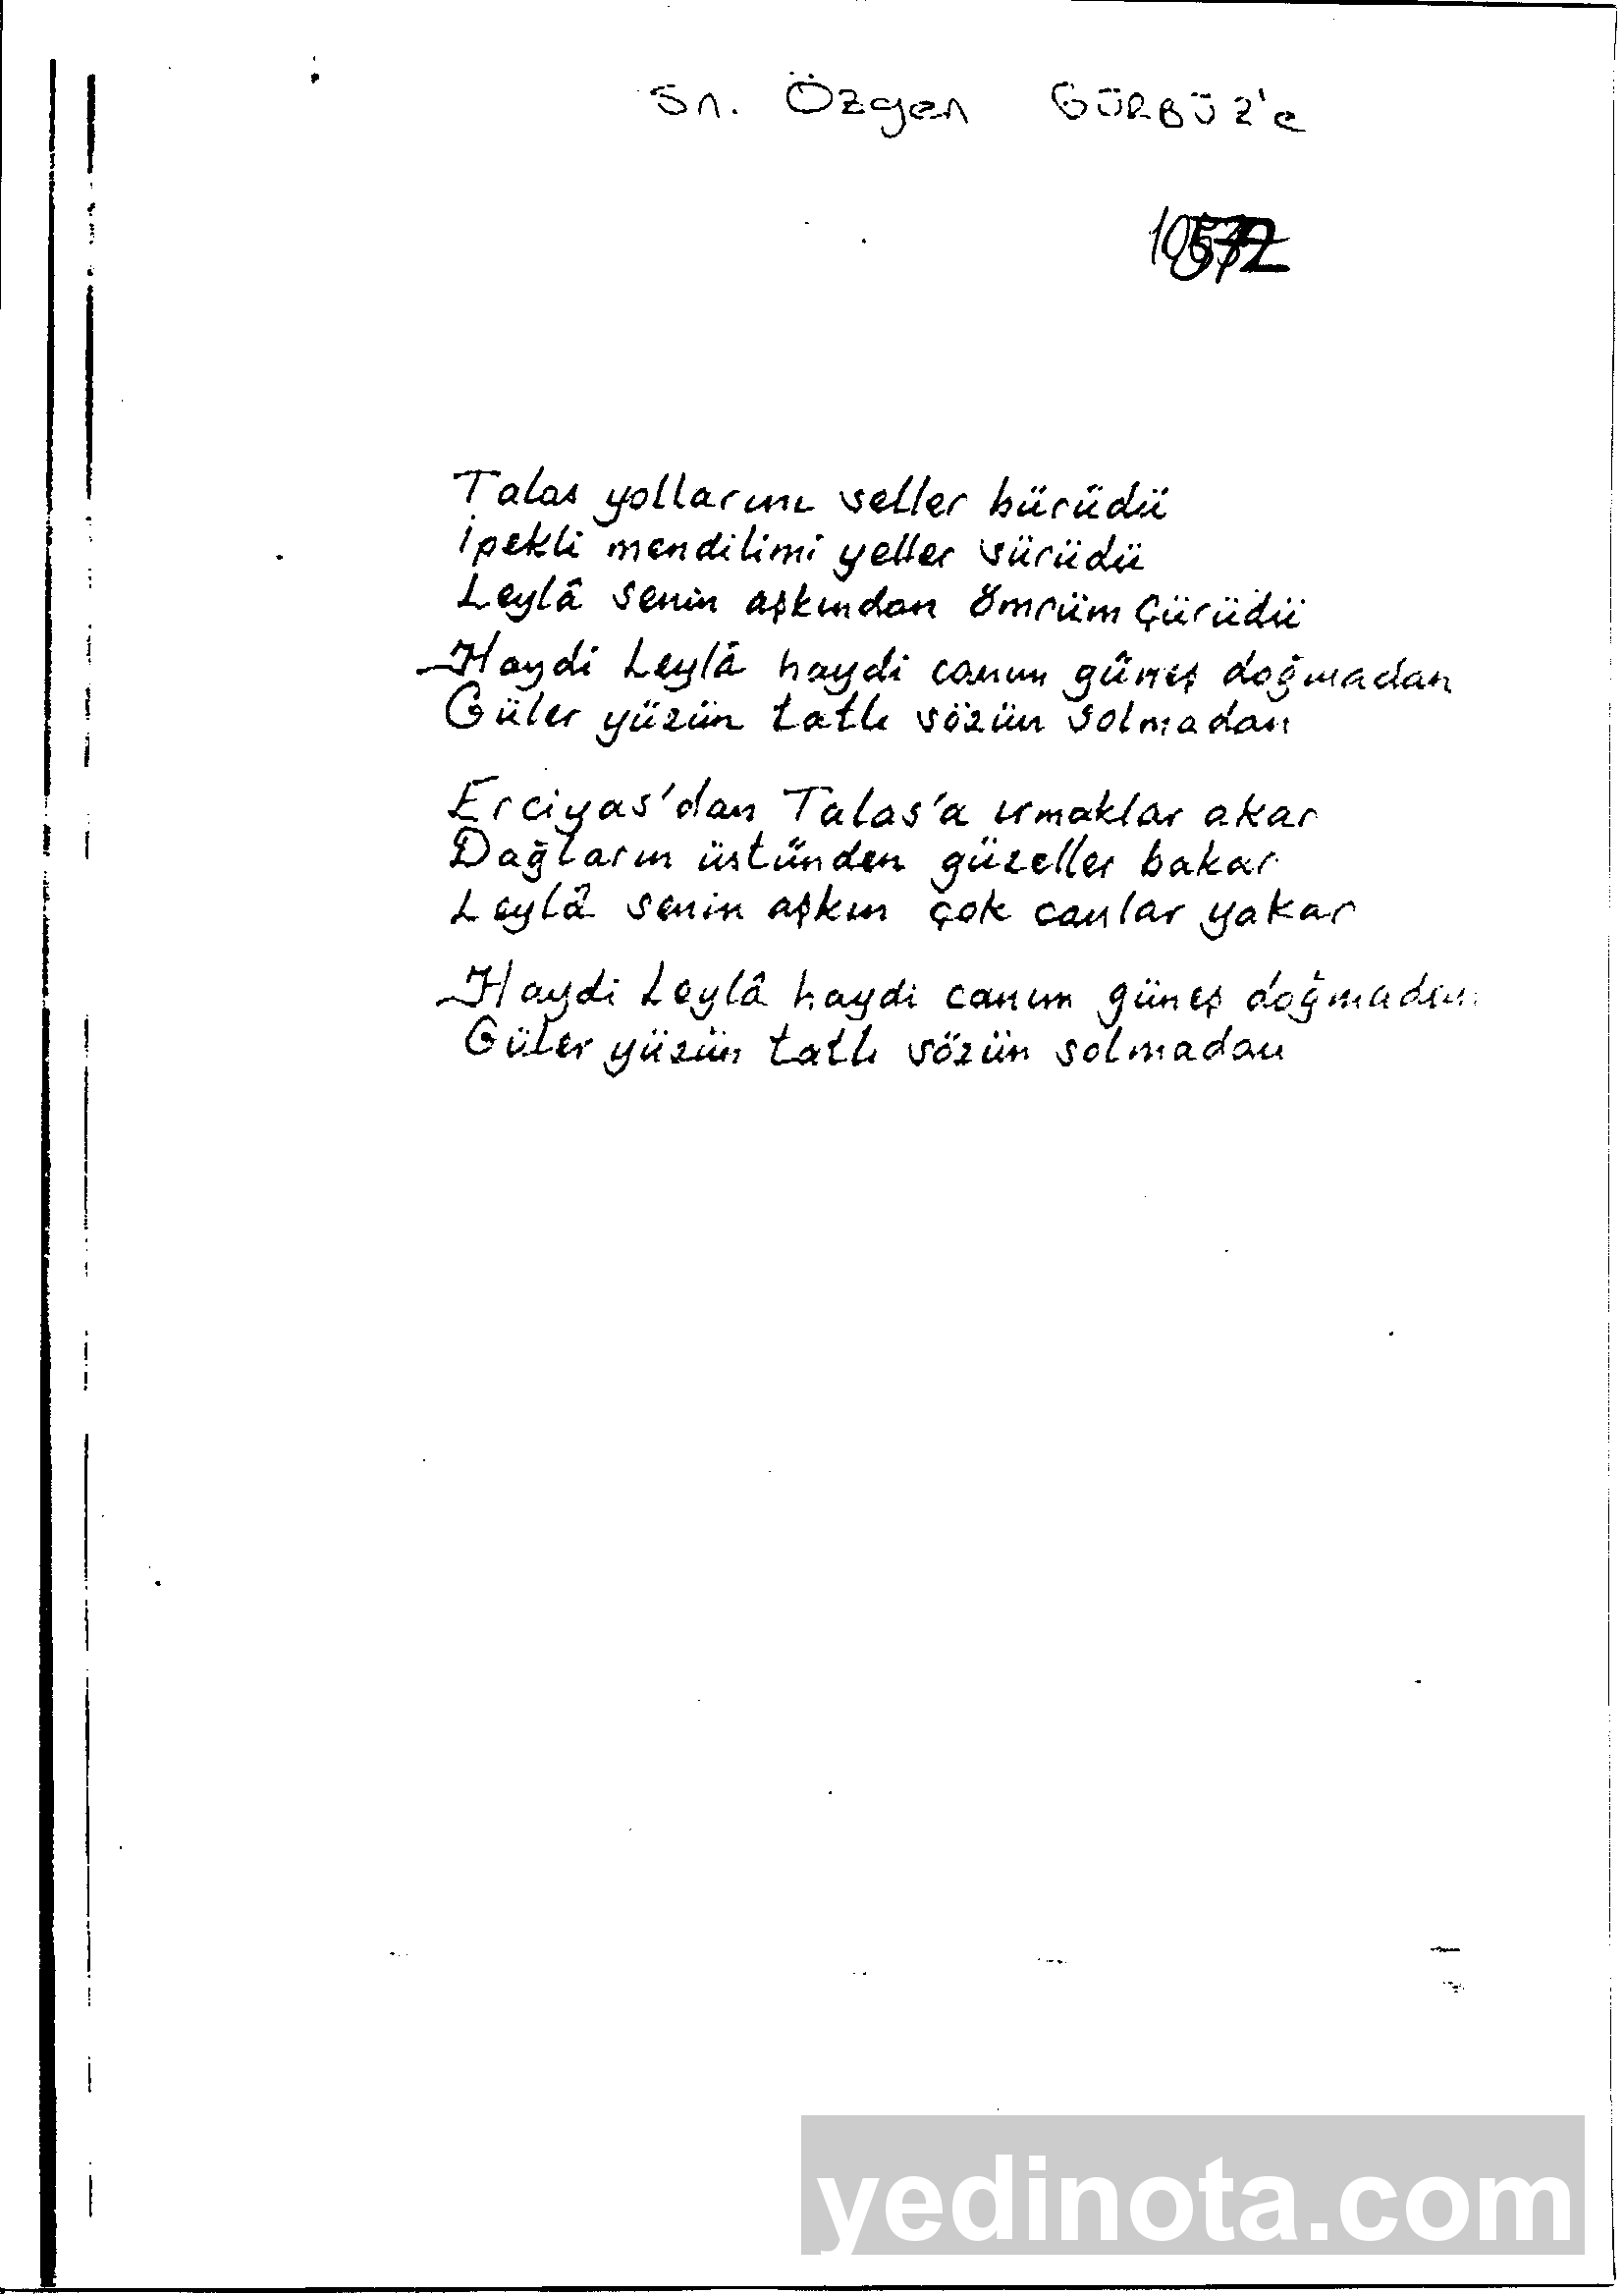 Sn. Özgen GÜRBÜZ'e
Talas yollarını seller bürüdü
İpekli mendilimi yeller sürüdü
Leylâ senin aşkından ömrüm çürüdü
Haydi Leylâ haydi canım güneş doğmadan
Güler yüzün tatlı sözün solmadan
Erciyas'dan Talas'a ırmaklar akar
Dağların üstünden güzeller bakar
Leylâ senin aşkın çok canlar yakar
Haydi Leylâ haydi canım güneş doğmadan
Güler yüzün tatlı sözün solmadan
yedinota.com